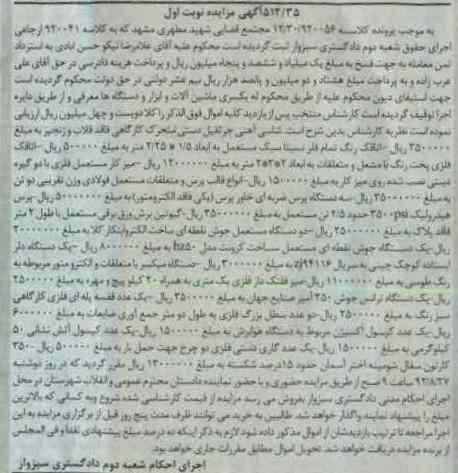 ۵۱۲/۳۵ آگهی مزایده نوبت اول
به موجب پرونده کلاسه ۱۲/۳۰/۹۲۰۰۵۶ مجتمع قضایی شهید مطهری مشهد که به کلاسه ۹۲۰۰۴۱ ارجاعی
اجرای حقوق شعبه دوم دادگستری سبزوار ثبت گردیده است محکوم علیه آقای غلامرضا نیکو حسن ابادی به استرداد
ثمن معامله به جهت فسخ به مبلغ یک میلیاد و ششصد و پنجاه میلیون ریال و پرداخت هزینه دادرسی در حق آقای علی
عرب زاده و به پرداخت مبلغ هشتاد و دو میلیون و پانصد هزار ریال نیم عشر دولتی در حق دولت محکوم گردیده است
جهت استیفای دیون محکوم علیه از طریق محکوم له یکسری ماشین آلات و ابزار و دستگاه ها معرفی و از طریق دایره
اجرا توقیف گردیده است کارشناس منتخب پس از بازدید کلیه اموال فوق الذکر را کلا دویست و چهل میلیون ریال ارزیابی
نموده است نظریه کارشناس بدین شرح است. شاسی آهنی جرثقیل دستی متحرک کارگاهی فاقد قلاب و زنجیر به مبلغ
۳۵۰۰۰۰۰ ریال-اتاقک رنگ تمام فلز نسبتا سبک مستعمل به ابعاد ۱/۵ * ۲/۲۵ متر به مبلغ ۵۰۰۰۰۰۰ ریال-اتاقک
فلزی پخت رنگ با مشعل و متعلقات به ابعاد ۲*۲*۳ متر به مبلغ ۱۲۰۰۰۰۰۰ ریال-میز کار مستعمل فلزی با دو گیره
دستی نصب شده روی میز کار به مبلغ ۱۵۰۰۰۰۰ ریال-انواع قالب پرس و متعلقات مستعمل فولادی وزن تقریبی دو تن
به مبلغ ۳۵۰۰۰۰۰۰ ریال-سه دستگاه پرس ضربه ای خاور پرس (یکی فاقد الکتروموتور) به مبلغ ۵۰۰۰۰۰۰۰ ریال-پرس
هیدرولیک ۳۵۰۰psi حدود ۲/۵ تن مستعمل به مبلغ ۳۵۰۰۰۰۰۰ ریال-گیوتین برش ورق برقی مستعمل با طول ۲ متر
فاقد پلاک به مبلغ ۲۵۰۰۰۰۰۰ ریال-دو دستگاه مستعمل جوش نقطه ای ساخت الکتروابتکار کلا به مبلغ ۲۰۰۰۰۰۰۰
ریال-یک دستگاه جوش نقطه ای مستعمل ساخت کرونت مدل hu50 به مبلغ ۸۰۰۰۰۰۰ ریال-یک دستگاه دلر
ایستاده کوچک چینی به سریال zj۹۴۱۱۶ به مبلغ ۳۰۰۰۰۰۰ ریال-دستگاه میکسر با متعلقات و الکترو موتور مربوطه به
رنگ طوسی به مبلغ ۱۱۰۰۰۰۰۰ ریال-میز غلتک دار فلزی یک متری به همراه ۲۰ کیلو پیچ و مهره به مبلغ ۲۵۰۰۰۰۰
ریال-یک دستگاه ترانس جوش ۲۵۰ آمپر صنایع جهان به مبلغ ۳۵۰۰۰۰۰ ریال-یک عدد قفسه پله ای فلزی کارگاهی
سبز رنگ به مبلغ ۲۵۰۰۰۰۰ ریال-دو عدد سطل بزرگ فلزی به طول دو متر جمع آوری ضایعات به مبلغ ۶۰۰۰۰۰۰
ریال-یک عدد کپسول اکسیژن مربوط به دستگاه هوابرش به مبلغ ۱۵۰۰۰۰۰ ریال-یک عدد کپسول آتش نشانی ۵۰
کیلوگرمی به مبلغ ۱۵۰۰۰۰۰ ریال-یک عدد گاری دستی فلزی دو چرخ جهت حمل بار به مبلغ ۵۰۰۰۰۰ ریال-۳۵۰
کارتون سفال شومینه اختر آسمان حدود ۱۵درصد شکسته به مبلغ ۱۳۰۰۰۰۰۰ ریال مقرر گردید که در روز دوشنبه
۹۲/۸/۲۷ ساعت ۹ صبح از طریق مزایده حضوری و با حضور نماینده دادستان محترم عمومی و انقلاب شهرستان در محل
اجرای احکام مدنی دادگستری سبزوار بفروش می رسد مزایده از قیمت کارشناسی شده شروع و به کسانی که بالاترین
مبلغ را پیشنهاد نمایند واگذار خواهد شد. طالبین به خرید می توانند ظرف مدت پنج روز قبل از برگزاری مزایده به این
اجرا مراجعه تا ترتیب بازدیدشان از اموال مذکور داده شود لازم به ذکر اینکه ده درصد مبلغ پیشنهادی نقدا و فی المجلس
از برنده مزایده دریافت خواهد شد. تحویل اموال مطابق مقررات جاری خواهد بود.
اجرای احکام شعبه دوم دادگستری سبزوار